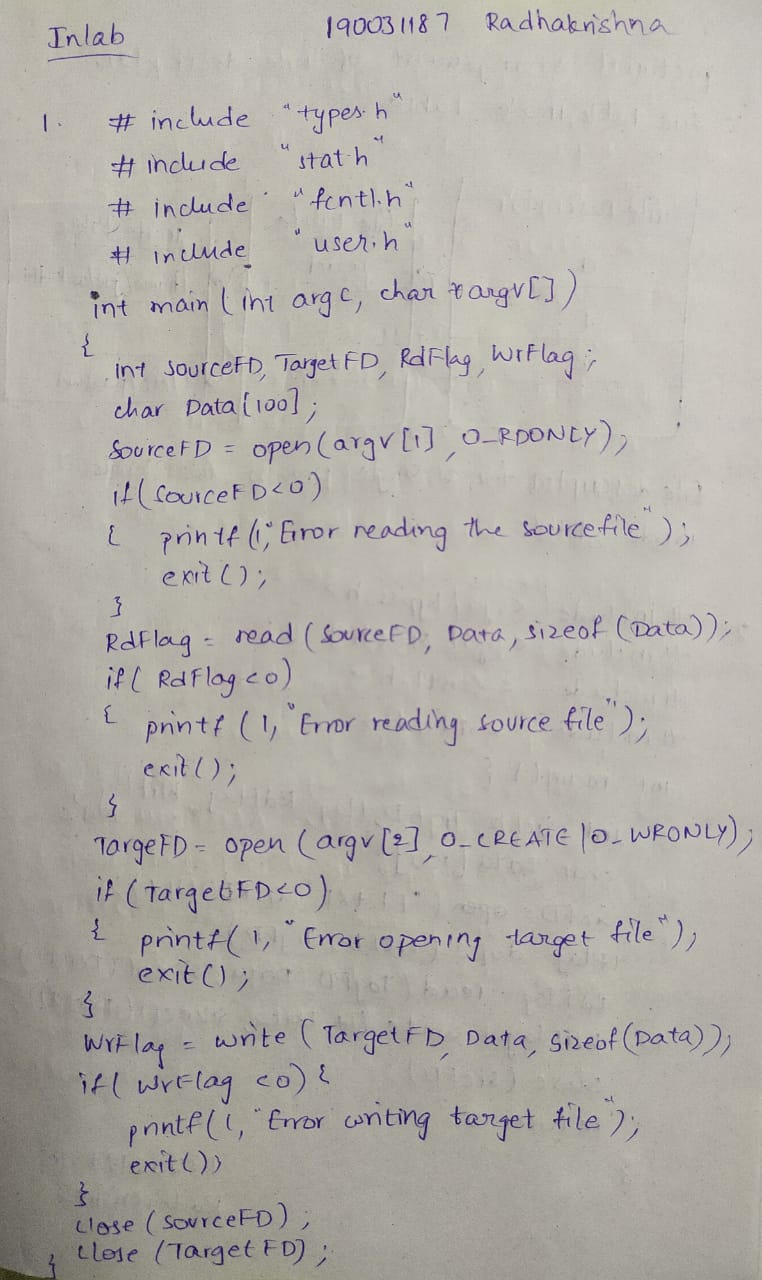 Inlab 190031187 Radhakrishna
1. # include "types.h"
# include "stat.h"
# include "fcntl.h"
# include "user.h"
int main (int argc, char *argv[])
{
int sourceFD, TargetFD, RdFlag, WrFlag;
char Data[100];
SourceFD = open(argv[1], O_RDONLY);
if(SourceFD<0)
{ printf(1,"Error reading the sourcefile");
exit();
}
RdFlag = read (SourceFD, Data, sizeof (Data));
if( RdFlag <0)
{ printf (1, "Error reading source file");
exit();
}
TargeFD = open (argv[2], O_CREATE |O_WRONLY);
if (TargetFD<0)
{ printf(1, "Error opening target file");
exit();
}
WrFlag = write (TargetFD, Data, sizeof(Data));
if( WrFlag <0) {
printf(1, "Error writing target file");
exit();
}
close (sourceFD);
} close (TargetFD);